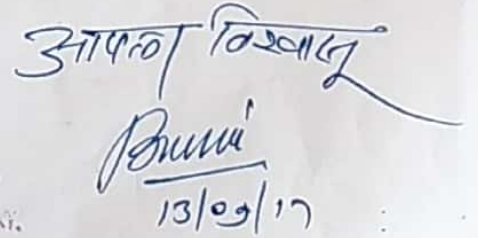 आपला विश्वासू
13/09/17